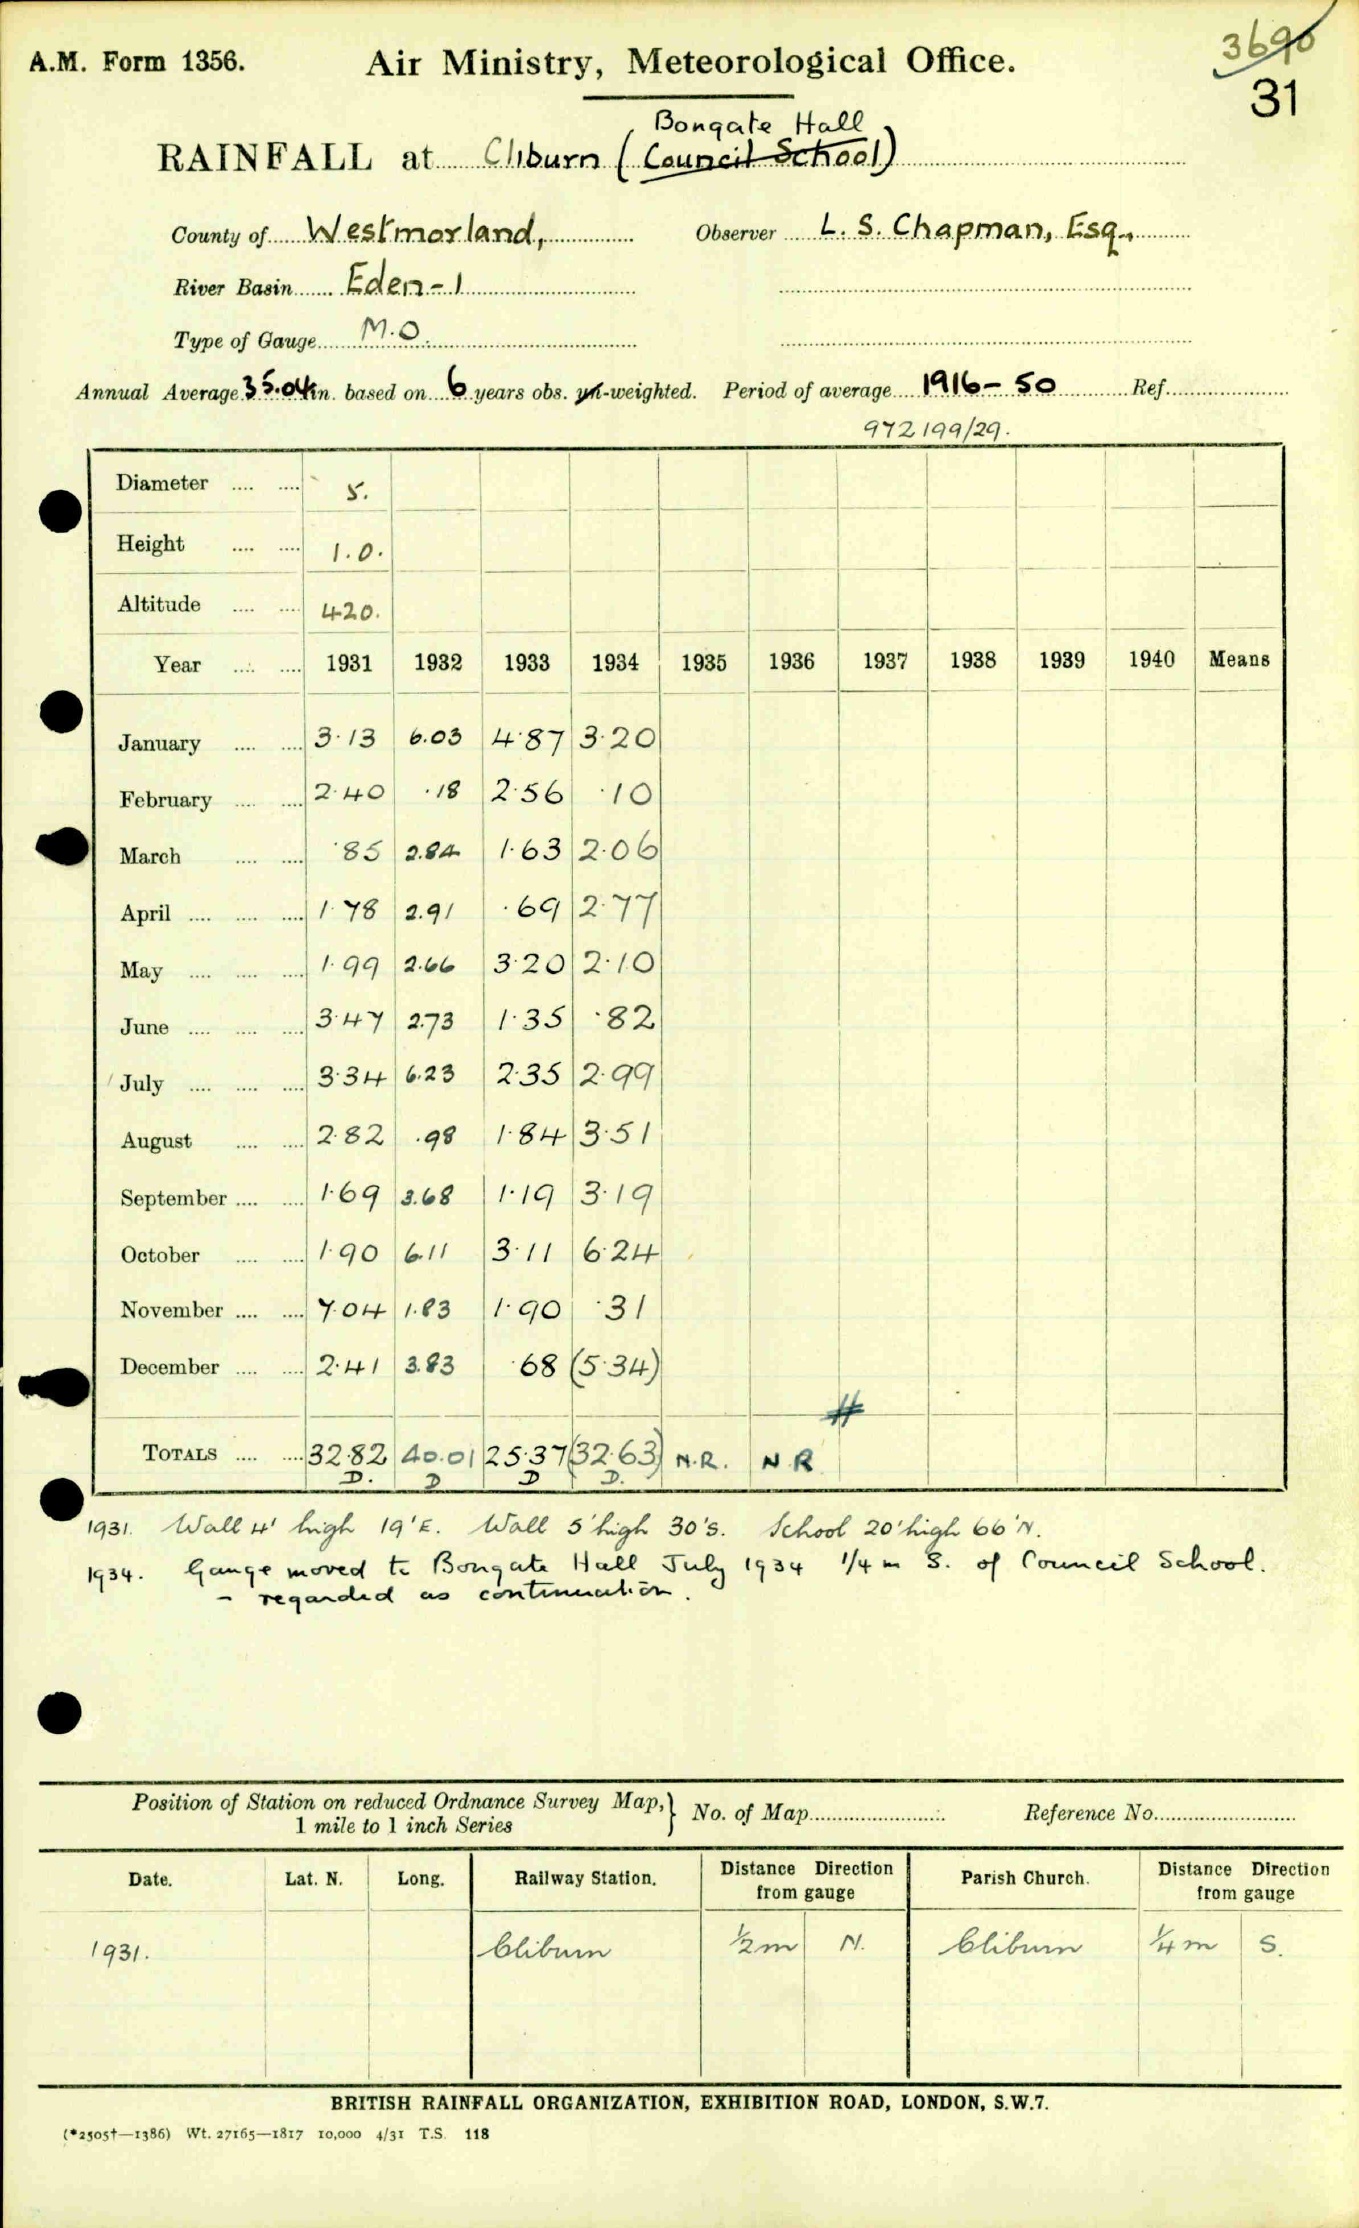 3690
A.M. Form 1356. Air Ministry, Meteorological Office.
31
Bongate Hall
RAINFALL at Cliburn (Council School)
County of Westmorland, Observer L. S. Chapman, Esq.,
River Basin Eden-1
Type of Gauge M.O.
Annual Average 35.04 in. based on 6 years obs. un-weighted. Period of average 1916-50 Ref.
972199/29.
Diameter .... .... 5.
Height .... .... 1.0.
Altitude .... .... 420.
Year .... .... 1931 1932 1933 1934 1935 1936 1937 1938 1939 1940 Means
January .... .... 3.13 6.03 4.87 3.20
February .... .... 2.40 .18 2.56 .10
March .... .... .85 2.84 1.63 2.06
April .... .... .... 1.78 2.91 .69 2.77
May .... .... .... 1.99 2.66 3.20 2.10
June .... .... .... 3.47 2.73 1.35 .82
July .... .... .... 3.34 6.23 2.35 2.99
August .... .... 2.82 .98 1.84 3.51
September .... .... 1.69 3.68 1.19 3.19
October .... .... 1.90 6.11 3.11 6.24
November .... .... 7.04 1.83 1.90 .31
December .... .... 2.41 3.83 .68 (5.34)
#
TOTALS .... .... 32.82 40.01 25.37 (32.63) N.R. N.R
D. D D D.
1931. Wall 4' high 19'E. Wall 5' high 30's. School 20' high 66'N.
1934. Gauge moved to Bongate Hall July 1934 1/4 m S. of Council School.
- regarded as continuation.
Position of Station on reduced Ordnance Survey Map, } No. of Map Reference No.
1 mile to 1 inch Series
Date. Lat. N. Long. Railway Station. Distance Direction Parish Church. Distance Direction
from gauge from gauge
1931. Cliburn 1/2 m N. Cliburn 1/4 m S.
BRITISH RAINFALL ORGANIZATION, EXHIBITION ROAD, LONDON, S.W.7.
(*2505†—1386) Wt. 27165—1817 10,000 4/31 T.S. 118